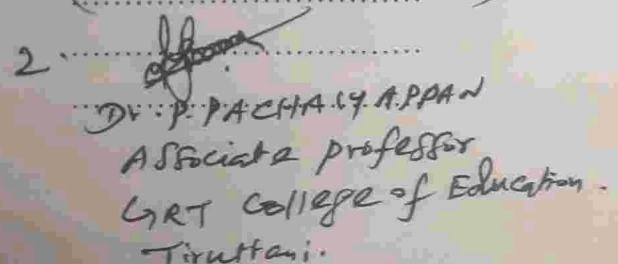 2.
Dr. P. PACHAIYAPPAN
Associate professor
GRT College of Education.
Tiruttani.